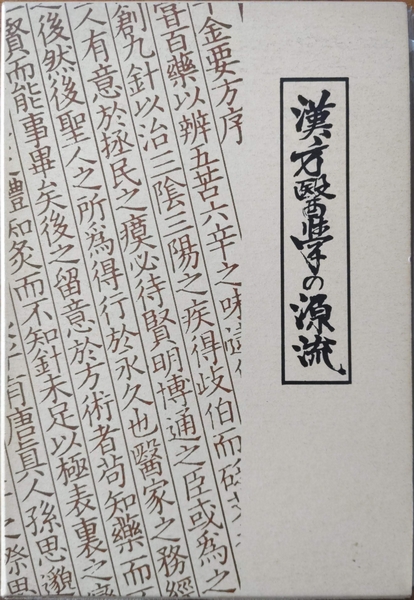 漢方醫學の源流
金要方序
嘗百藥以辨五苦六辛之味
創九針以治三陰三陽之疾得歧伯而砭
人有意於拯民之瘼必待賢明博通之臣或為之
後然後聖人之所為得行於永久也醫家之務經
賢而能事畢矣後之留意於方術者苟知藥而
知灸而不知針未足以極表裏之
有唐真人孫思邈
之際思